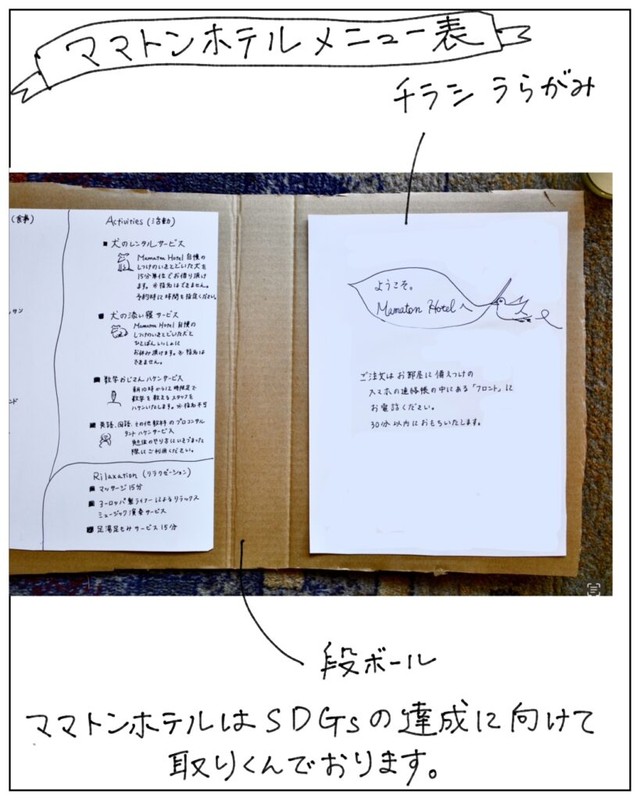 ママトンホテルメニュー表
チラシ うらがみ
(食事)
Activities (活動)
■ 犬のレンタルサービス
Mamaton Hotel 自慢の
しつけのいきとどいた犬を
15分単位でお借り頂け
ます。※指名はできません。
予約時に時間を指定ください。
■ 犬の添い寝サービス
Mamaton Hotel 自慢の
しつけのいきとどいた犬と
ひとばんいっしょに
お休み頂けます。※指名は
できません。
■ 数学おじさんハケンサービス
朝10時から12時限定で
数学を教えるスタッフを
ハケンいたします。※指名不可
■ 英語、国語、その他教科のプロコンサル
タントハケンサービス
勉強のやり方にいきづまった
際にご利用ください。
Rilaxation (リラクゼーション)
■ マッサージ 15分
■ ヨーロッパ製ライアーによるリラックス
ミュージック演奏サービス
■ 足湯足もみサービス 15分
ようこそ。
Mamaton Hotel へ
ご注文はお部屋に備えつけの
スマホの連絡帳の中にある「フロント」に
お電話ください。
30分以内におもちいたします。
段ボール
ママトンホテルはSDGsの達成に向けて
取りくんでおります。